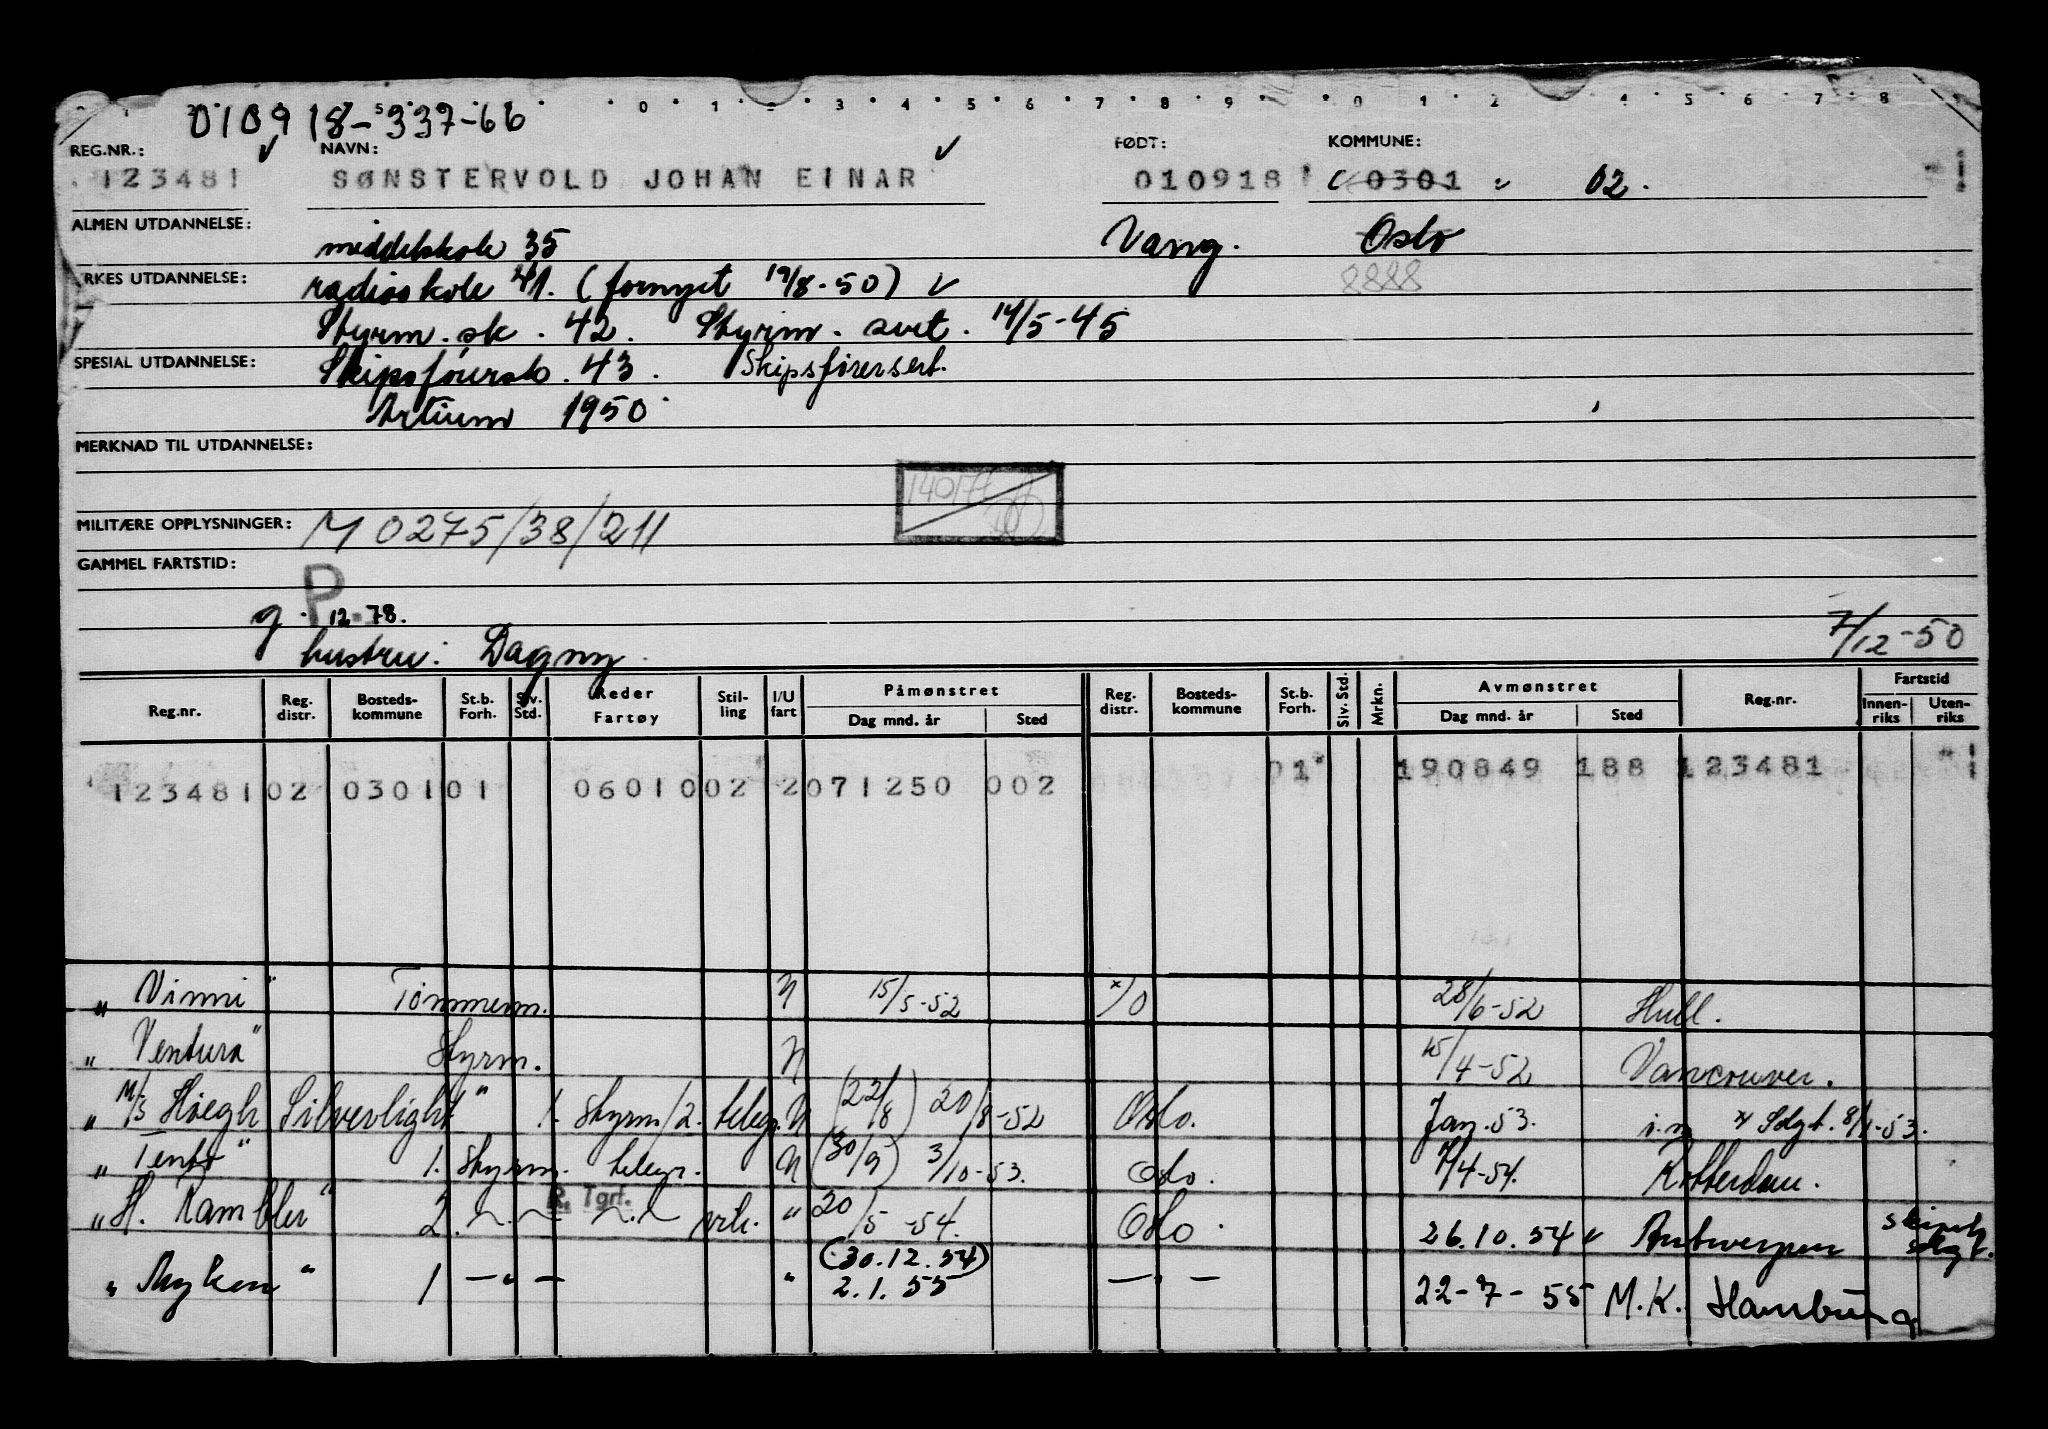 010918-337-66
0 1 3 4 5 6 7 8 9 0 1 2 4 5 6 7 8
REG.NR.: NAVN: FØDT: KOMMUNE:
123481 SØNSTERVOLD JOHAN EINAR 010918 0301 02.
ALMEN UTDANNELSE: middelskole 35 Vang. Oslo
RKES UTDANNELSE: radioskole 41. (fornyet 19/8-50) 8888
Styrm.sk. 42. Styrm. sert. 14/5-45
SPESIAL UTDANNELSE: Skipsførersk. 43. Skipsførersert.
Artium 1950
MERKNAD TIL UTDANNELSE:
MILITÆRE OPPLYSNINGER: M 0275/38/211
GAMMEL FARTSTID:
P
g. 12.78.
hustru: Dagny. 7/12-50
Reg.nr. Reg. distr. Bosteds-kommune St.b. Forh. Siv. Std. Reder Fartøy Stil-ling I/U fart Påmønstret Dag mnd. år Sted Reg. distr. Bosteds-kommune St.b. Forh. Siv. Std. Mrkn. Avmønstret Dag mnd. år Sted Reg.nr. Fartstid Innen-riks Uten-riks
01 190849 188 123481
123481 02 0301 01 0601002 2 071250 002
"Vinni" Tømmerm. N 15/5-52 x/O 28/6-52 Hull.
"Ventura" Styrm. N 15/4-52 Vancouver.
"M/S Höegh Silverlight" 1. Styrm/2. telegr. N (22/8) 20/8-52 Oslo. Jan. 53. 8/1-53.
1. Styrm. telegr. N (30/9) 3/10-53. Oslo. 7/4-54. Rotterdam.
R. Tgrf.
"H. Rambler" 2. " 20/5-54. Oslo. 26.10.54 Antwerpen
(30.12.54)
"Myken" 1 —"— " 2.1.55 —"— 22-7-55 M.K. Hamburg